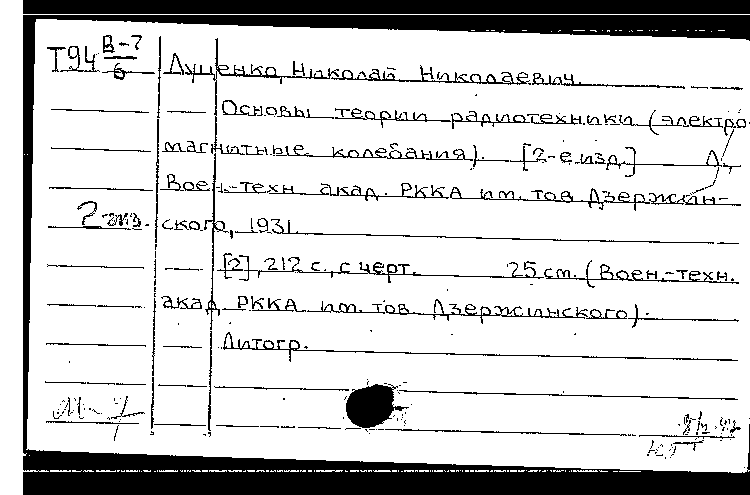 Т94 В-7/6
Луценко, Николай Николаевич.
Основы теории радиотехники (электро-
магнитные колебания). [2-е изд.] Л.,
Воен.-техн. акад. РККА им. тов. Дзержин-
2 экз. ского, 1931.
[2], 212 с., с черт. 25 см. (Воен.-техн.
акад. РККА им. тов. Дзержинского).
Литогр.